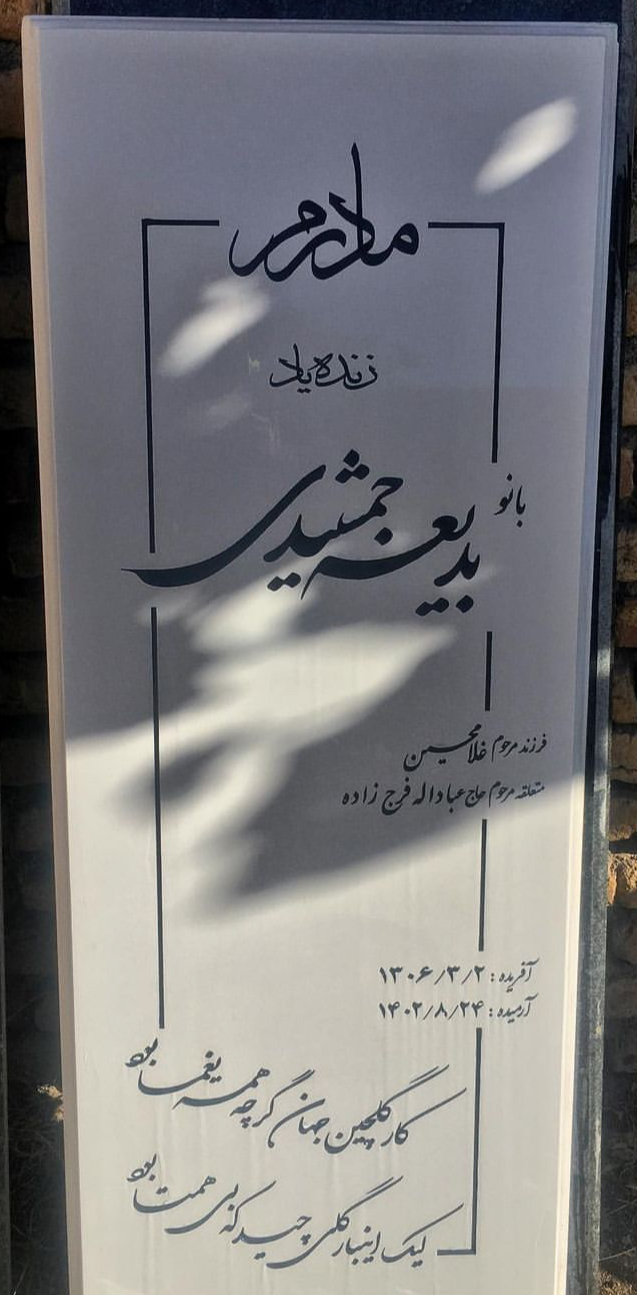 مادرم
زنده یاد
بانو
بدیعه جمشیدی
فرزند مرحوم غلامحسین
متعلقه مرحوم حاج عباداله فرج زاده
آفریده : ۱۳۰۶/۳/۲
آرمیده : ۱۴۰۲/۸/۲۴
کار گلچین جهان گرچه همه یغما بود
لیک اینبار گلی چید که بی همتا بود